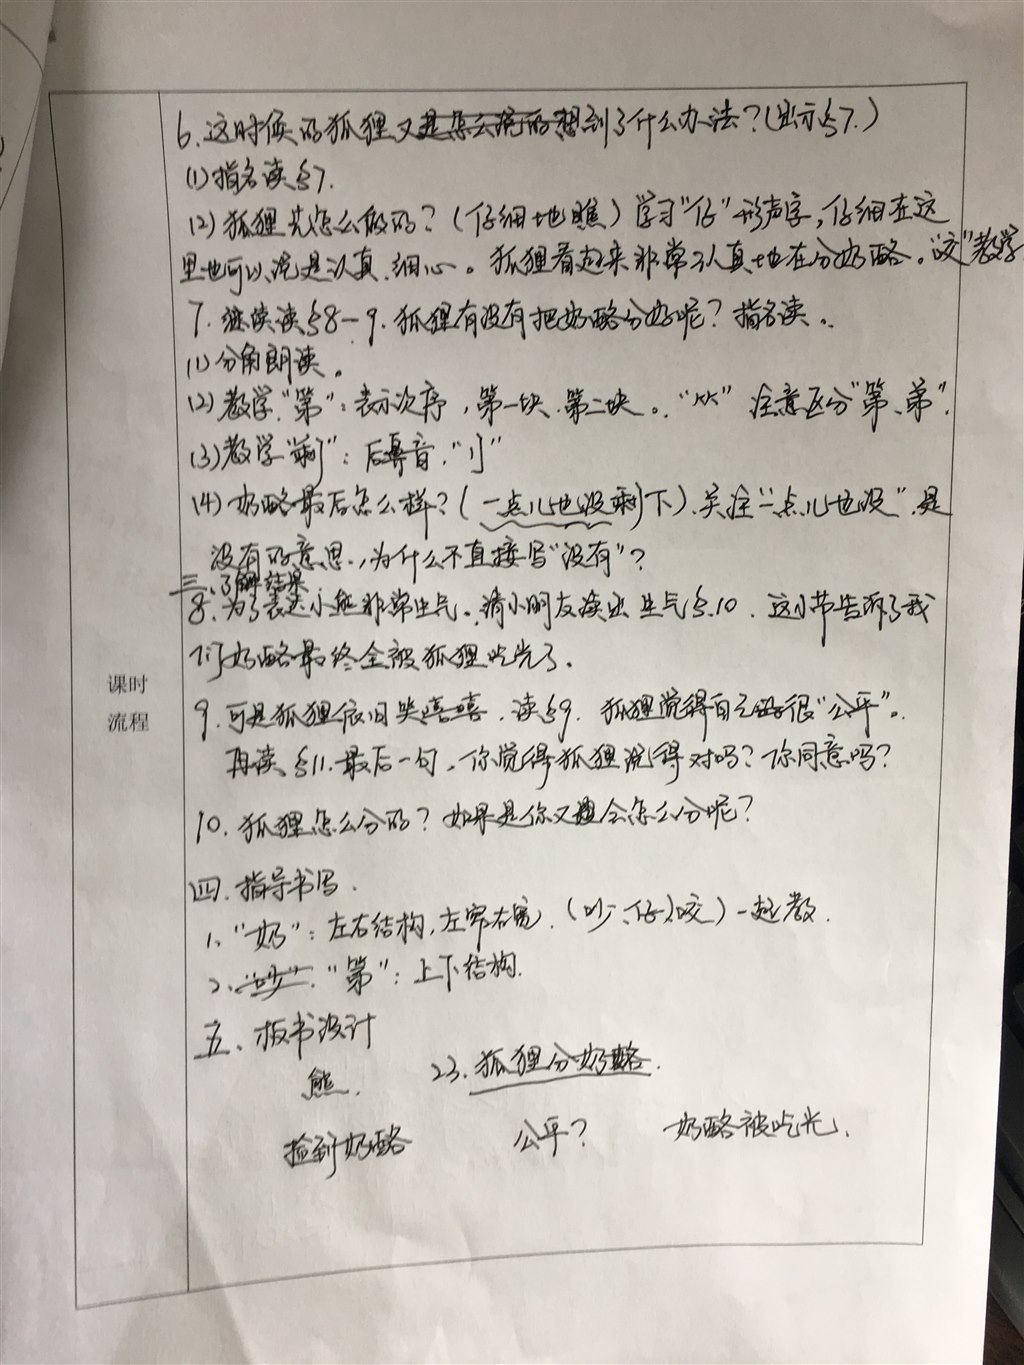 6.这时候的狐狸又想到了什么办法?(出示§7.)
(1)指名读§7.
(2)狐狸先怎么做的?(仔细地瞧)学习"仔"形声字,仔细在这
里也可以说是认真、细心。狐狸看起来非常认真地在分奶酪。"咬"教学.
7.继续读§8-9.狐狸有没有把奶酪分好呢?指名读。
(1)分角朗读。
(2)教学"第":表示次序,第一块、第二块。"⺮"注意区分"第、弟".
(3)教学"剩":后鼻音."刂"
(4)奶酪最后怎么样?(一点儿也没剩下).关注"一点儿也没".是
没有的意思.,为什么不直接写"没有"?
三、了解结果
8.为了表达小熊非常生气.请小朋友读出生气§.10.这小节告诉了我
们奶酪最终全被狐狸吃光了.
课时
流程
9.可是狐狸依旧笑嘻嘻.读§9.狐狸觉得自己很"公平"。
再读§11.最后一句.你觉得狐狸说得对吗?你同意吗?
10.狐狸怎么分的?如果是你又会怎么分呢?
四.指导书写.
1."奶":左右结构,左窄右宽.(吵、仔、咬)一起教.
2."第":上下结构.
五、板书设计
23.狐狸分奶酪.
熊.
捡到奶酪 公平? 奶酪被吃光.